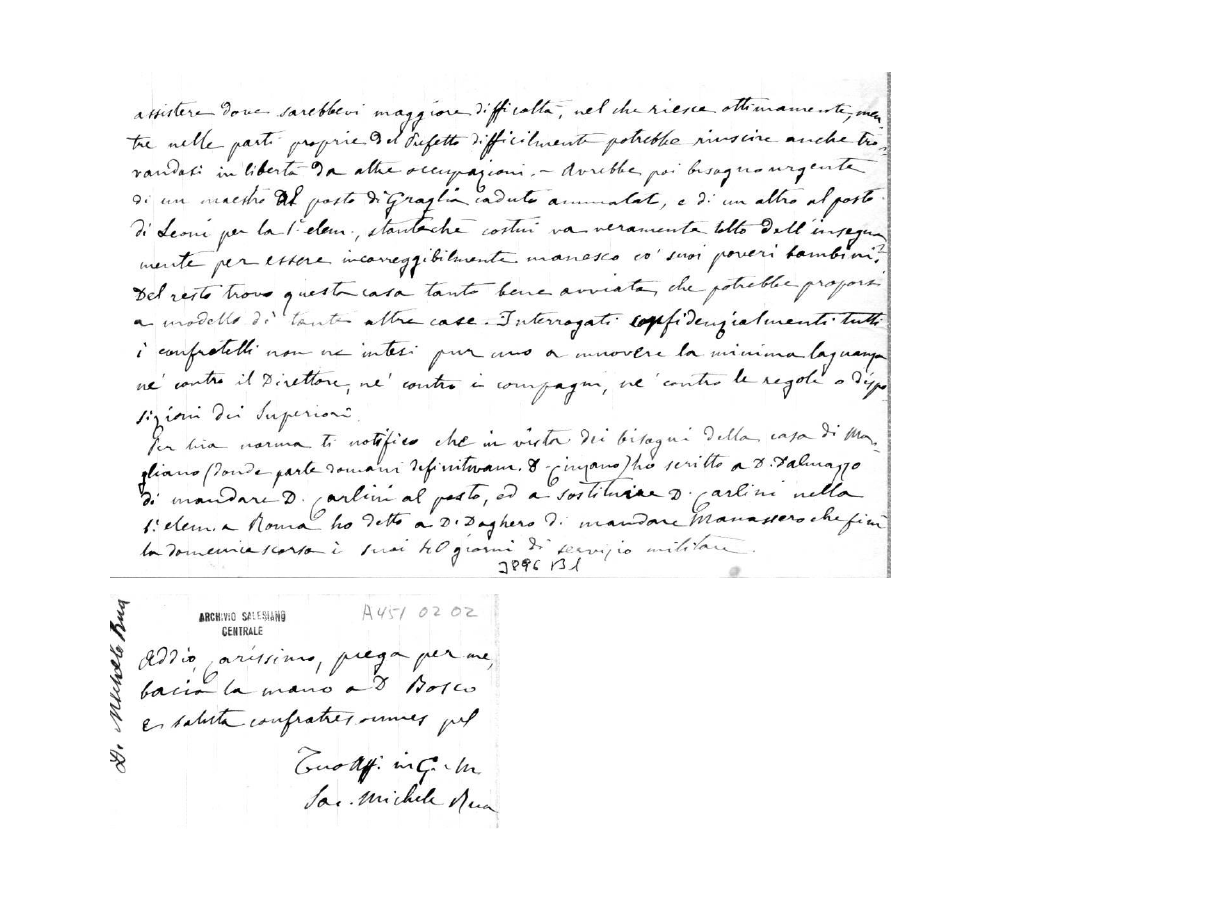 assistere dove sarebbevi maggiore difficoltà, nel che riesce ottimamente, men-
tre nelle parti proprie del Prefetto difficilmente potrebbe riuscire anche tro-
vandosi in libertà da altre occupazioni. - Avrebbe poi bisogno urgente
di un maestro al posto di Graglia caduto ammalato, e di un altro al posto
di Leoni per la 1ª elem., stanteché costui va veramente tolto dell'insegna
mento per essere incorreggibilmente manesco co' suoi poveri bambini.
Del resto trovo questa casa tanto bene avviata, che potrebbe proporsi
a modello di tante altre case. Interrogati confidenzialmente tutti
i confratelli non ne intesi pur uno a muovere la minima lagnanza
né contro il Direttore, né contro i compagni, né contro le regole o dispo-
sizioni dei Superiori.
Per tua norma ti notifico che in vista dei bisogni della casa di Ma-
gliano (donde parte domani definitivam. D. Cinzano) ho scritto a D. Dalmazzo
di mandare D. Carlini al posto, ed a sostituire D. Carlini nella
1ª elem. a Roma ho detto a D. Daghero di mandare Manassero che finì
la domenica scorsa i suoi 40 giorni di servizio militare.
3896 B1
D. Michele Rua
ARCHIVIO SALESIANO
CENTRALE
A451 02 02
Addio, carissimo, prega per me,
bacia la mano a D Bosco
e saluta confratres omnes pel
Tuo Aff. in G. e M.
Sac. Michele Rua